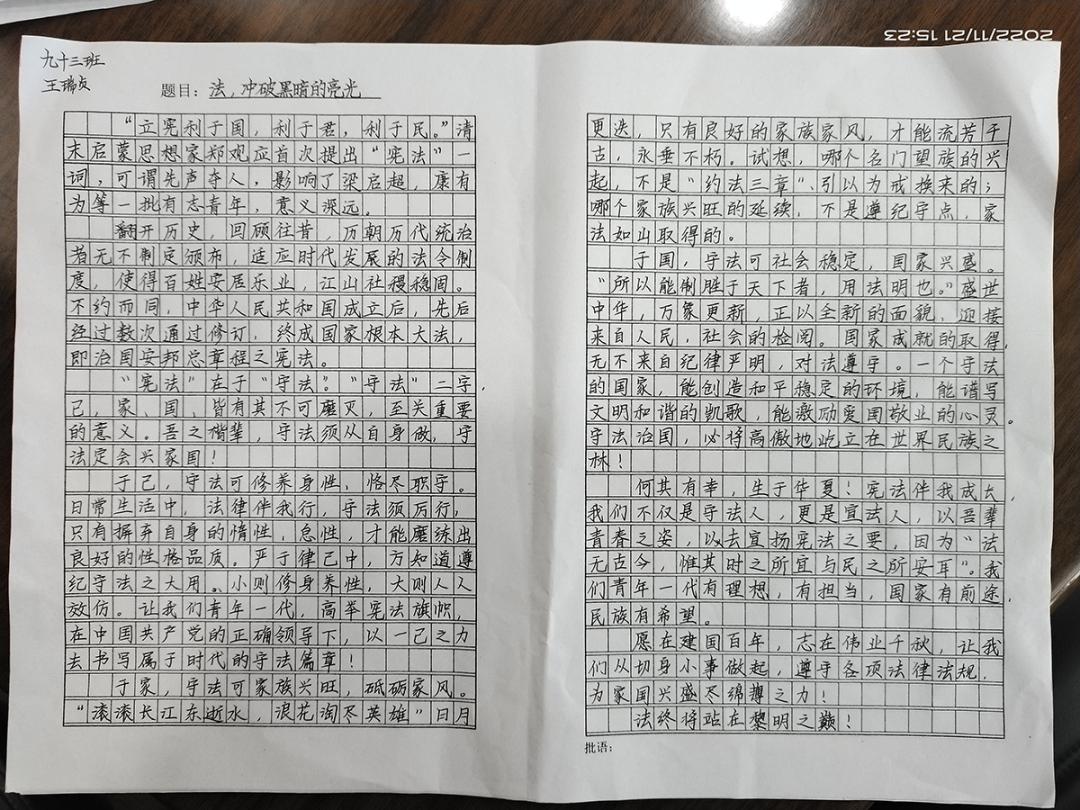 2022/11/21 15:23
九十三班
王瑞贞
题目：法，冲破黑暗的亮光
“立宪利于国，利于君，利于民。”清
末启蒙思想家郑观应首次提出“宪法”一
词，可谓先声夺人，影响了梁启超，康有
为等一批有志青年，意义深远。
翻开历史，回顾往昔，历朝历代统治
者无不制定颁布，适应时代发展的法令制
度，使得百姓安居乐业，江山社稷稳固。
不约而同，中华人民共和国成立后，先后
经过数次通过修订，终成国家根本大法，
即治国安邦总章程之宪法。
“宪法”在于“守法”。“守法”二字，
己，家、国、皆有其不可磨灭，至关重要
的意义。吾之楷辈，守法须从自身做，守
法定会兴家国！
于己，守法可修养身性，恪尽职守。
日常生活中，法律伴我行，守法须厉行，
只有摒弃自身的惰性，怠性，才能磨练出
良好的性格品质。严于律己中，方知道遵
纪守法之大用。小则修身养性，大则人人
效仿。让我们青年一代，高举宪法旗帜，
在中国共产党的正确领导下，以一己之力
去书写属于时代的守法篇章！
于家，守法可家族兴旺，砥砺家风。
“滚滚长江东逝水，浪花淘尽英雄”日月
更迭，只有良好的家族家风，才能流芳千
古，永垂不朽。试想，哪个名门望族的兴
起，不是“约法三章”、引以为戒换来的；
哪个家族兴旺的延续，不是遵纪守点，家
法如山取得的。
于国，守法可社会稳定，国家兴盛。
“所以能制胜于天下者，用法明也。”盛世
中华，万象更新，正以全新的面貌，迎接
来自人民，社会的检阅。国家成就的取得，
无不来自纪律严明，对法遵守。一个守法
的国家，能创造和平稳定的环境，能谱写
文明和谐的凯歌，能激励爱国敬业的心灵。
守法治国，必将高傲地屹立在世界民族之
林！
何其有幸，生于华夏！宪法伴我成长，
我们不仅是守法人，更是宣法人，以吾辈
青春之姿，以去宣扬宪法之要，因为“法
无古今，惟其时之所宜与民之所安耳”。我
们青年一代有理想，有担当，国家有前途，
民族有希望。
愿在建国百年，志在伟业千秋，让我
们从切身小事做起，遵守各项法律法规，
为家国兴盛尽绵薄之力！
法终将站在黎明之巅！
批语：